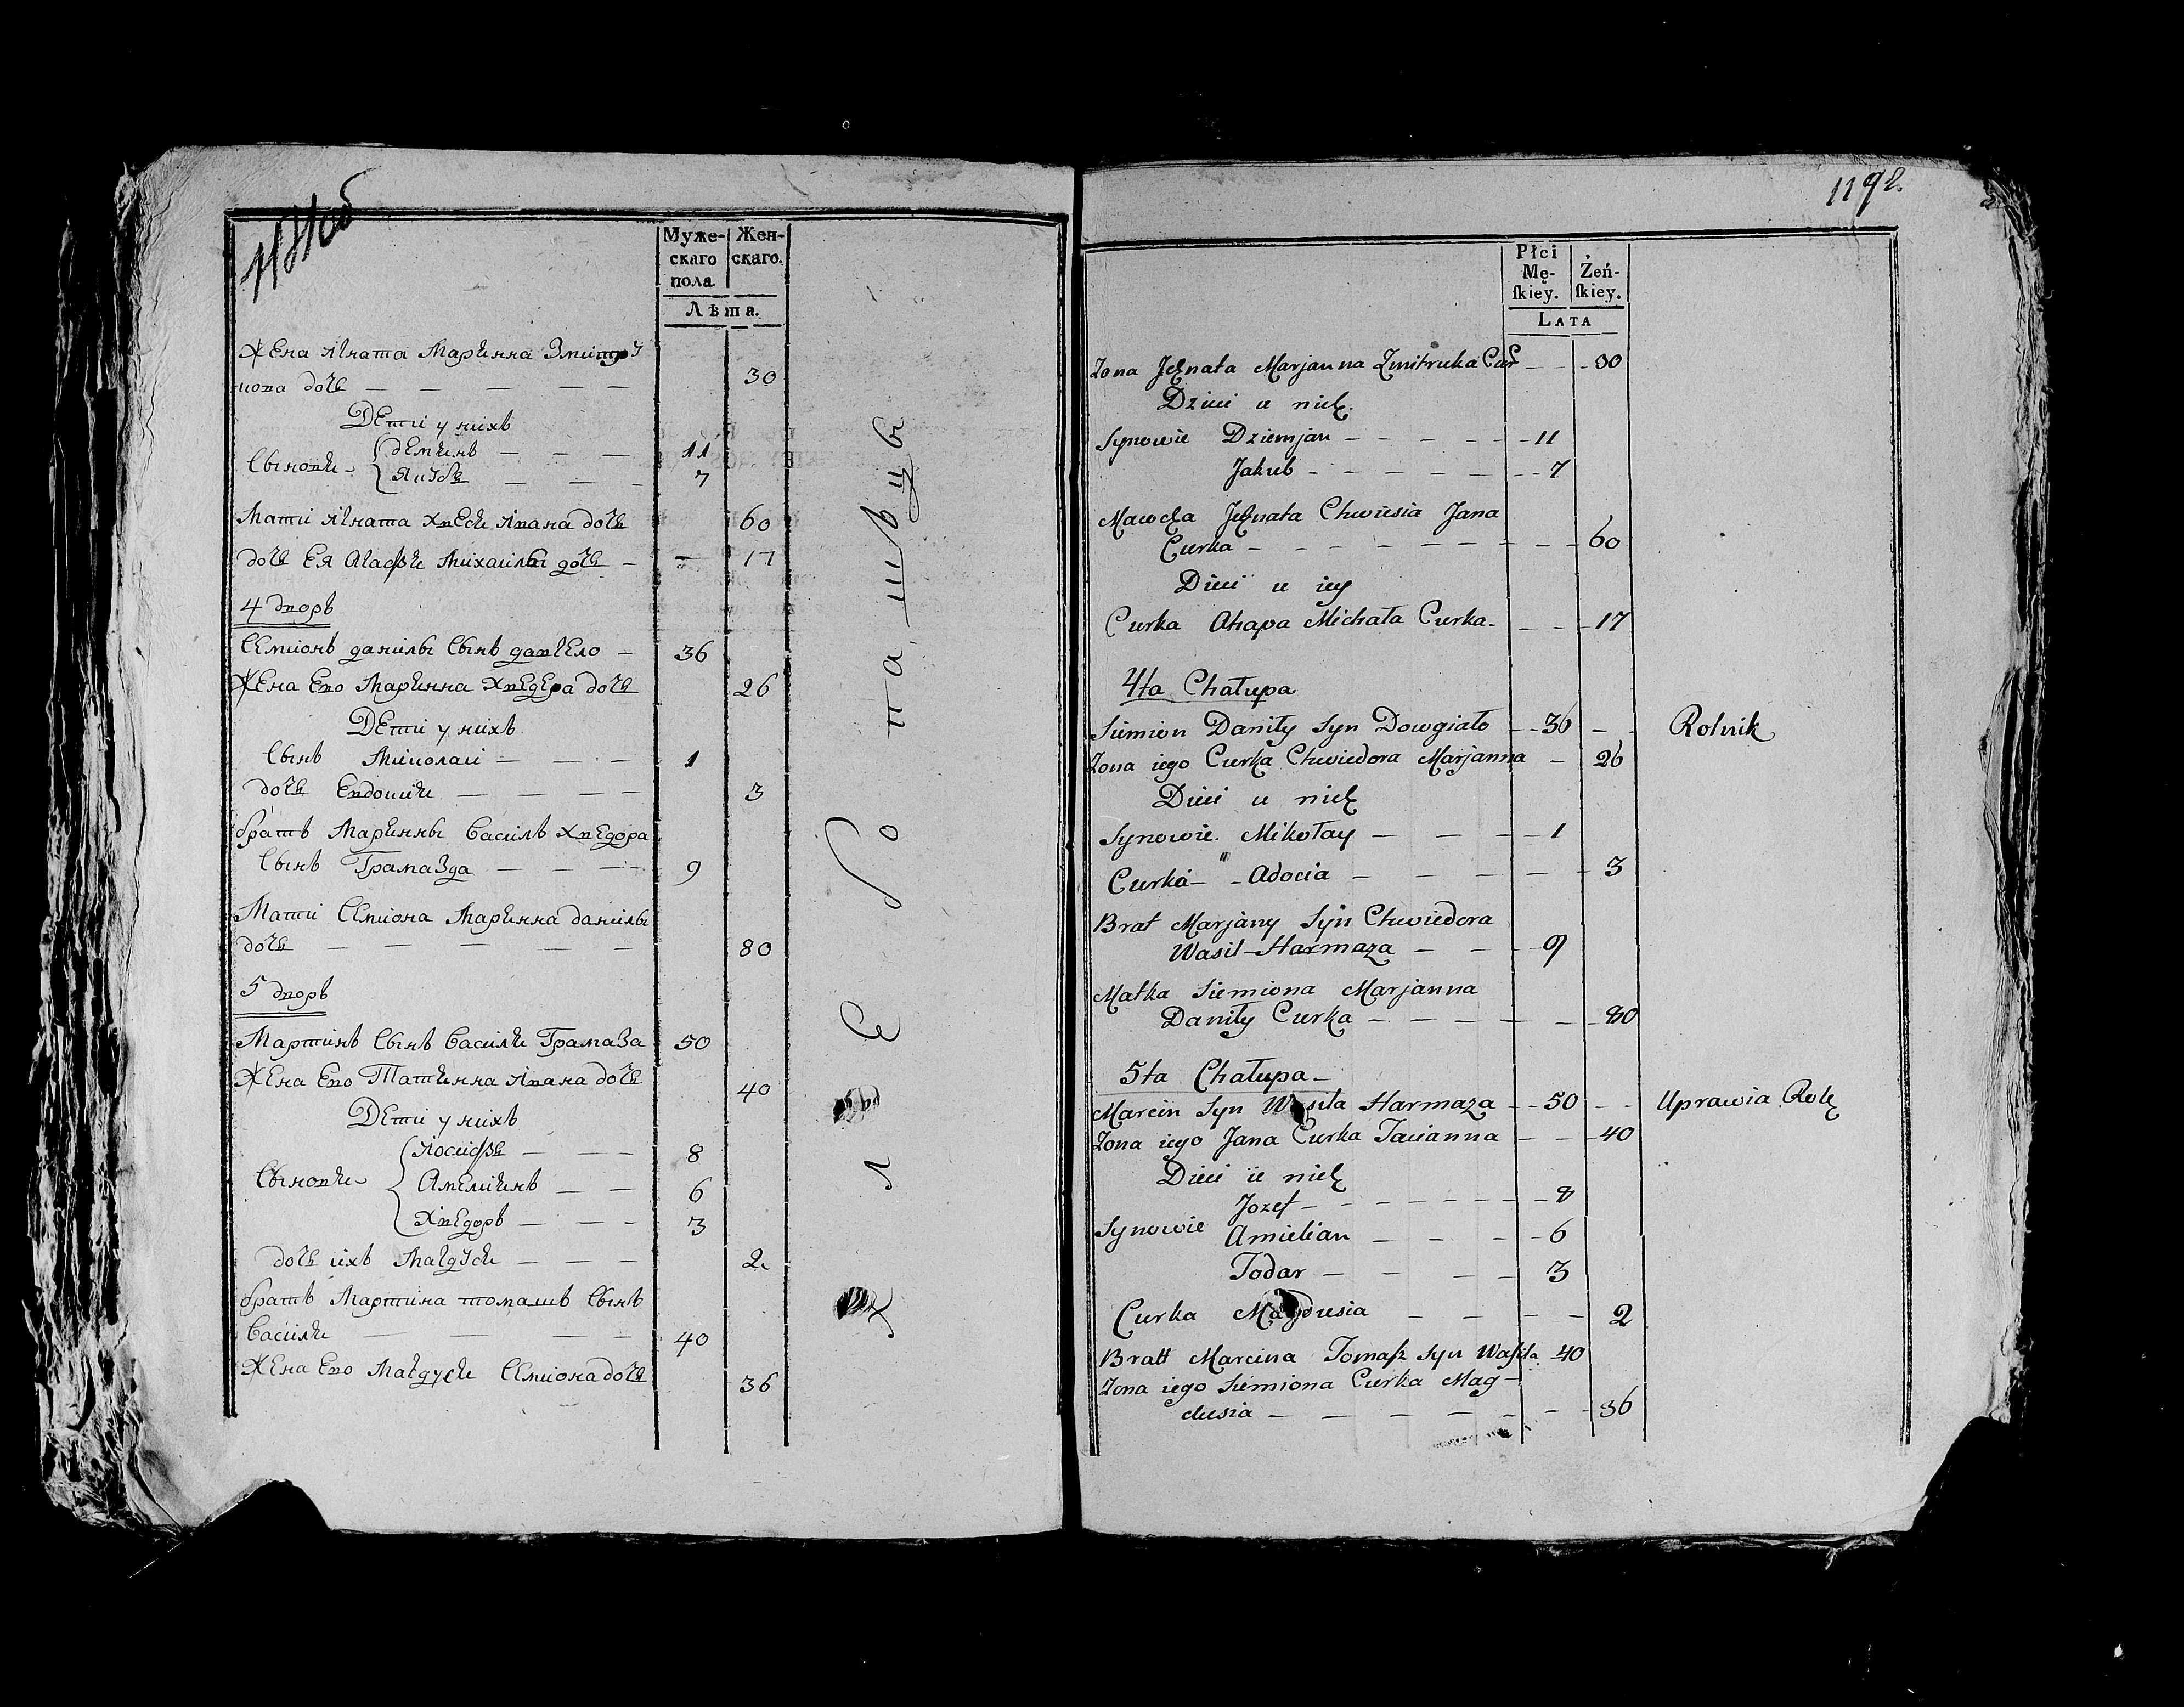 Муже-
скаго
пола
Жен-
скаго.
Лѣта.
Жена Игната Марꙗнна Змитру
кова дочь — — — — — 30
Дети у нихъ
Сыновꙗ Демꙗнъ — — — 11
Якубъ — — — 7
Мати Игната Хвеся Ивана дочь 60
дочь Ея Агафꙗ Михаилы дочь — 17
4 дворъ
Семионъ данилы Сынъ давгело — 36
Жена Ево Марꙗнна Хведера дочь 26
Дети у нихъ
Сынъ Миколаи — — — 1
дочь Евдокиꙗ — — — — 3
братъ Марꙗнны Василъ Хведора
Сынъ Грамазда — — — 9
Мати Семиона Марꙗнна данилы
дочь — — — — — 80
5 дворъ
Мартинъ Сынъ Василꙗ Грамаза 50
Жена Ево Татꙗнна Ивана дочь 40
Дети у нихъ
Сыновꙗ Иосифъ — — — 8
Амелиꙗнъ — — 6
Хведоръ — — — 3
дочь ихъ Магдуся — — — 2
братъ Мартина томашъ Сынъ
Василꙗ — — — — 40
Жена Ево Магдуся Семиона дочь 36
1192
Płci
Mę-
ſkiey.
Żeń-
ſkiey.
LATA
Zona Jęnata Marjanna Zmitruka Cur — — 30
Dzieci u nich
Synowie Dziemjan — — — — — 11
Jakub — — — — — 7
Jęnata Chwiesia Jana
Curka — — — — — — — — 60
Dieci u iey
Curka Ahapa Michała Curka — — — 17
4ta Chałupa
Siemion Daniły Syn Dowgiało — 36 — Rolnik
Zona iego Curka Chwiedora Marjanna — 26
Dieci u nich
Synowie Mikołay — — — 1
Curka — Adocia — — — — — 3
Brat Marjany Syn Chwiedora
Wasil Harmaza — — — 9
Matka Siemiona Marjanna
Daniły Curka — — — — — 80
5ta Chałupa —
Marcin Syn Wasila Harmaza — 50 — — Uprawia Rolę
Zona iego Jana Curka Tacianna — — — 40
Dieci u nich
Jozef — — — — — — 8
Synowie Amielian — — — 6
Todar — — — — 3
Curka Magdusia — — — — 2
Bratt Marcina Tomaſz Syn Waſila 40
Zona iego Siemiona Curka Mag-
dusia — — — — — — — 36